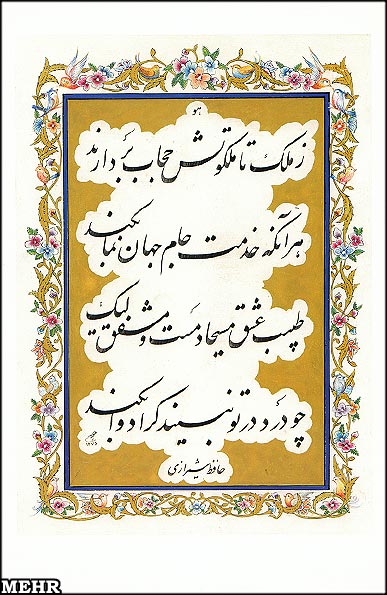 هو
ز ملک تا ملکوتش حجاب بردارند
هر آنکه خدمت جام جهان نما بکند
طبیب عشق مسیحا دمست و مشفق لیک
چو درد در تو نبیند کرا دوا بکند
حافظ شیرازی
MEHR